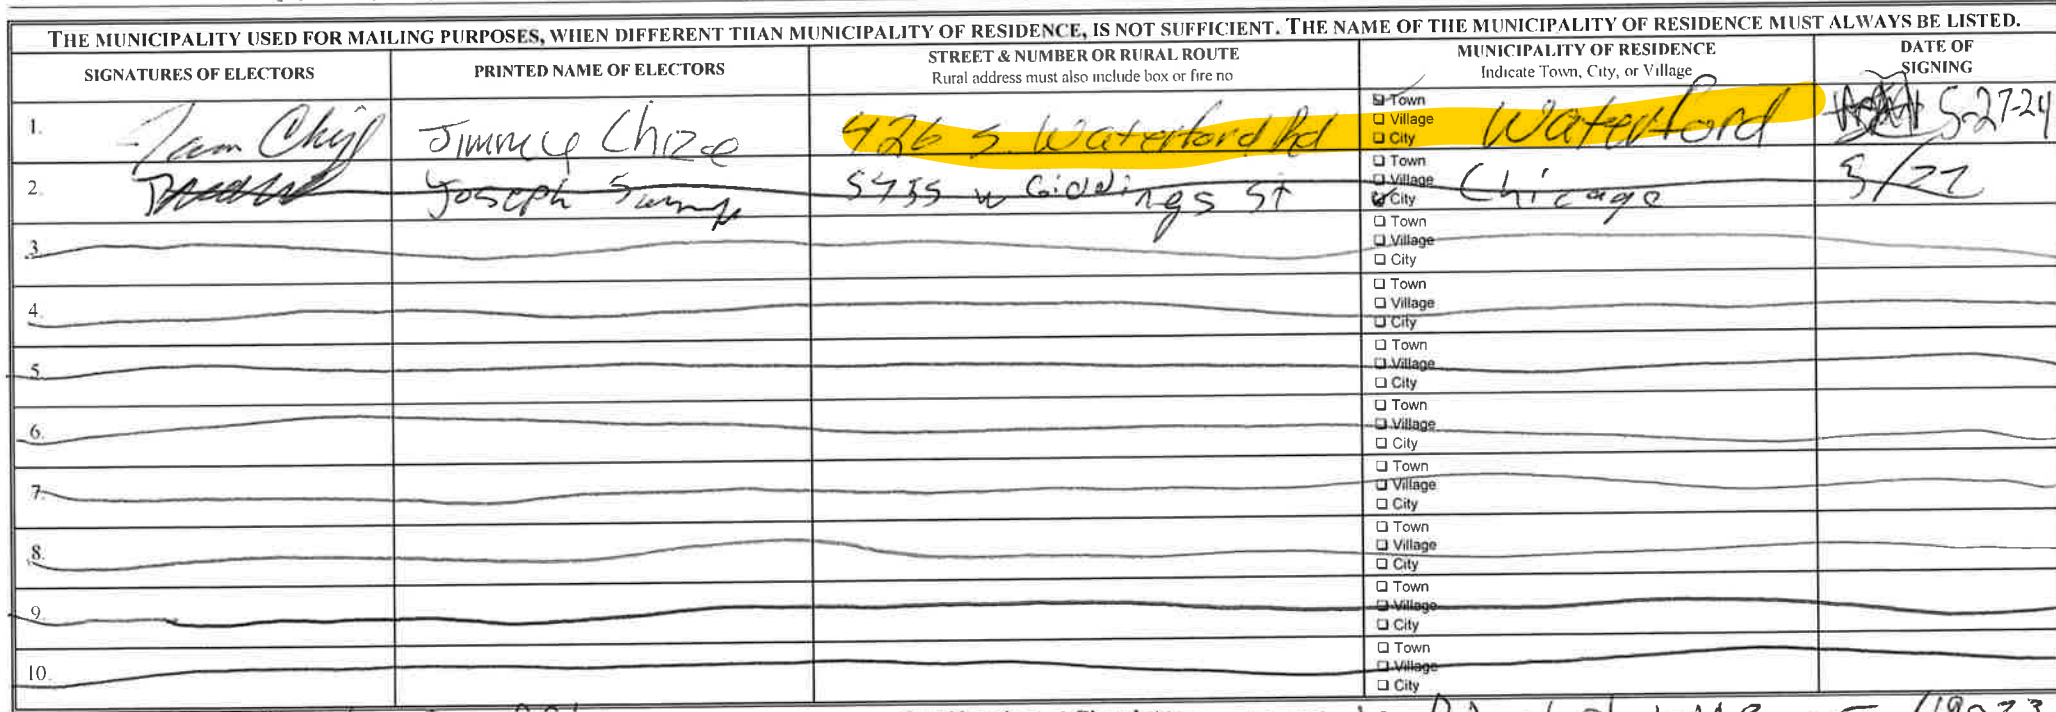 THE MUNICIPALITY USED FOR MAILING PURPOSES, WHEN DIFFERENT THAN MUNICIPALITY OF RESIDENCE, IS NOT SUFFICIENT. THE NAME OF THE MUNICIPALITY OF RESIDENCE MUST ALWAYS BE LISTED.
SIGNATURES OF ELECTORS
PRINTED NAME OF ELECTORS
STREET & NUMBER OR RURAL ROUTE
Rural address must also include box or fire no
MUNICIPALITY OF RESIDENCE
Indicate Town, City, or Village
DATE OF
SIGNING
1. Jimmy Chize 426 S. Waterford Rd Waterford 5-27-24
Town
Village
City
2. Joseph 5735 W Giddings St Chicago 5/22
Town
Village
City
3.
Town
Village
City
4.
Town
Village
City
5.
Town
Village
City
6.
Town
Village
City
7.
Town
Village
City
8.
Town
Village
City
9.
Town
Village
City
10.
Town
Village
City